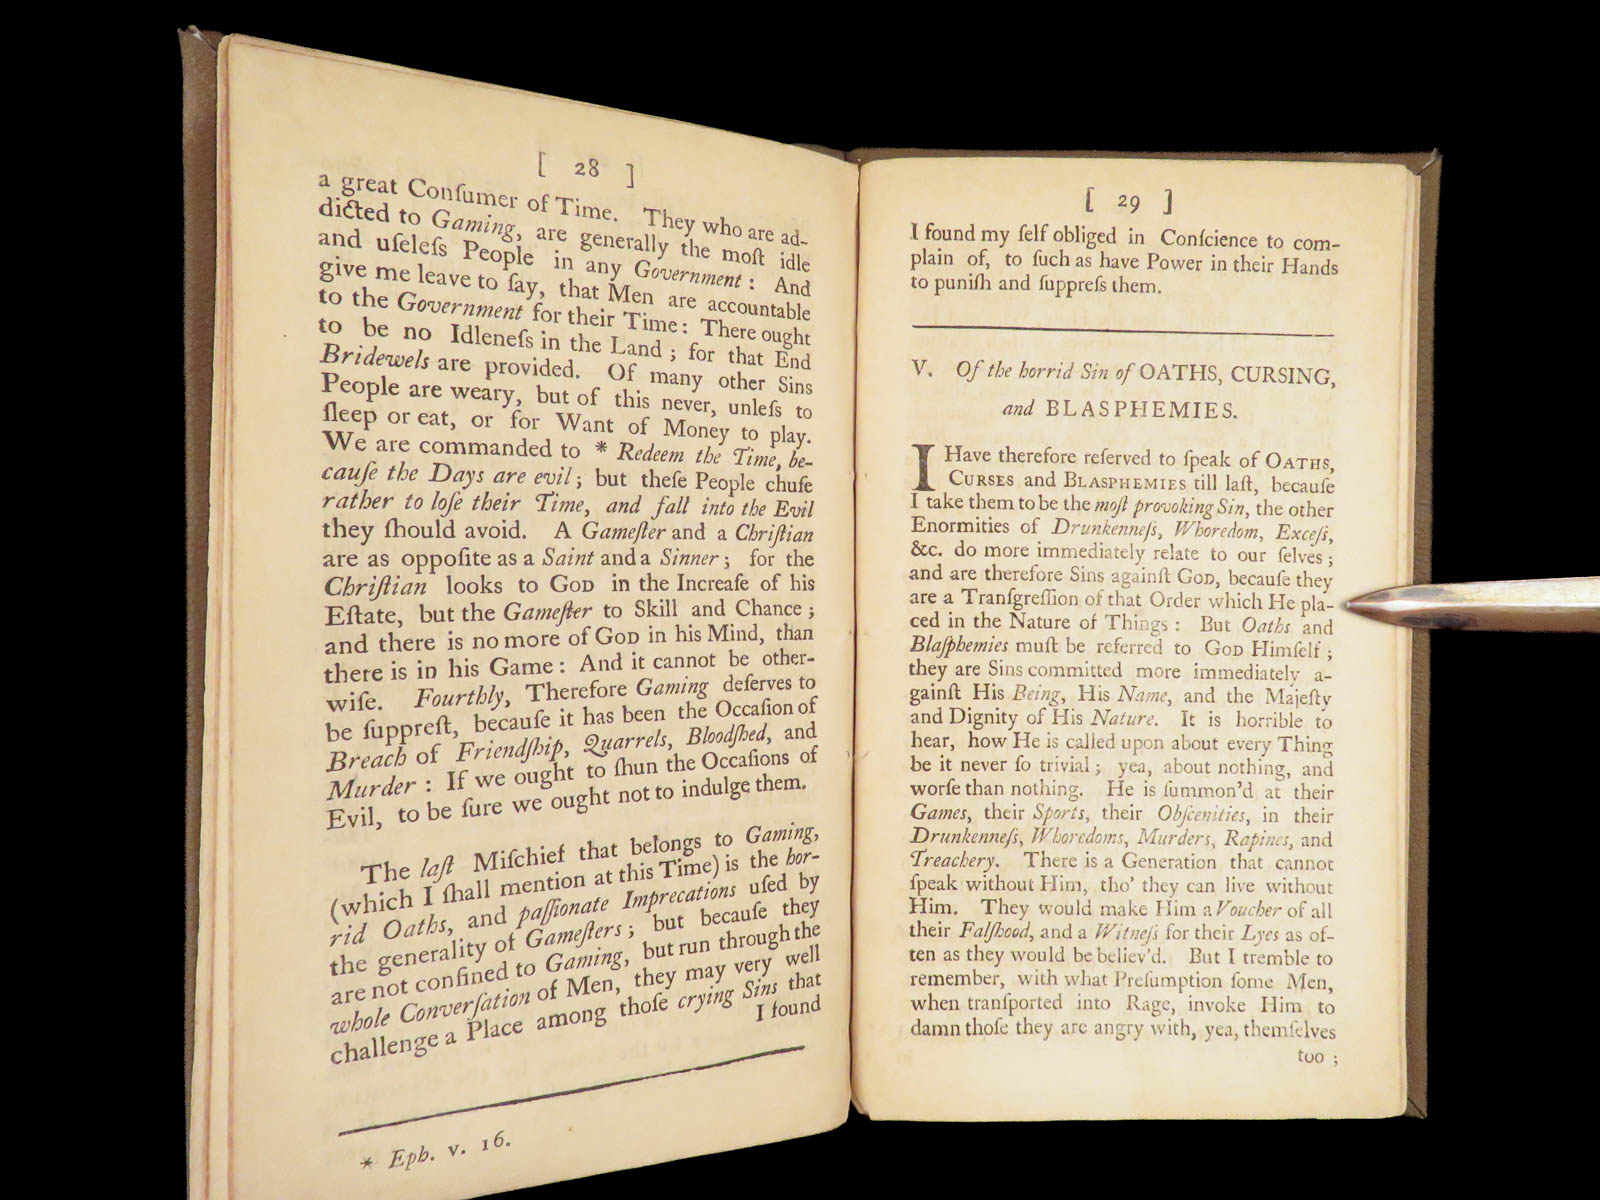 [ 28 ]
a great Conſumer of Time. They who are ad-
dicted to Gaming, are generally the moſt idle
and uſeleſs People in any Government : And
give me leave to ſay, that Men are accountable
to the Government for their Time : There ought
to be no Idleneſs in the Land ; for that End
Bridewels are provided. Of many other Sins
People are weary, but of this never, unleſs to
ſleep or eat, or for Want of Money to play.
We are commanded to * Redeem the Time, be-
cauſe the Days are evil ; but theſe People chuſe
rather to loſe their Time, and fall into the Evil
they ſhould avoid. A Gameſter and a Chriſtian
are as oppoſite as a Saint and a Sinner ; for the
Chriſtian looks to GOD in the Increaſe of his
Eſtate, but the Gameſter to Skill and Chance ;
and there is no more of GOD in his Mind, than
there is in his Game : And it cannot be other-
wiſe. Fourthly, Therefore Gaming deſerves to
be ſuppreſt, becauſe it has been the Occaſion of
Breach of Friendſhip, Quarrels, Bloodſhed, and
Murder : If we ought to ſhun the Occaſions of
Evil, to be ſure we ought not to indulge them.
The laſt Miſchief that belongs to Gaming,
(which I ſhall mention at this Time) is the hor-
rid Oaths, and paſſionate Imprecations uſed by
the generality of Gameſters ; but becauſe they
are not confined to Gaming, but run through the
whole Converſation of Men, they may very well
challenge a Place among thoſe crying Sins that
I found
* Eph. v. 16.
[ 29 ]
I found my ſelf obliged in Conſcience to com-
plain of, to ſuch as have Power in their Hands
to puniſh and ſuppreſs them.
V. Of the horrid Sin of OATHS, CURSING,
and BLASPHEMIES.
I Have therefore reſerved to ſpeak of OATHS,
CURSES and BLASPHEMIES till laſt, becauſe
I take them to be the moſt provoking Sin, the other
Enormities of Drunkenneſs, Whoredom, Exceſs,
&c. do more immediately relate to our ſelves ;
and are therefore Sins againſt GOD, becauſe they
are a Tranſgreſſion of that Order which He pla-
ced in the Nature of Things : But Oaths and
Blaſphemies muſt be referred to GOD Himſelf ;
they are Sins committed more immediately a-
gainſt His Being, His Name, and the Majeſty
and Dignity of His Nature. It is horrible to
hear, how He is called upon about every Thing
be it never ſo trivial ; yea, about nothing, and
worſe than nothing. He is ſummon'd at their
Games, their Sports, their Obſcenities, in their
Drunkenneſs, Whoredoms, Murders, Rapines, and
Treachery. There is a Generation that cannot
ſpeak without Him, tho' they can live without
Him. They would make Him a Voucher of all
their Falſhood, and a Witneſs for their Lyes as of-
ten as they would be believ'd. But I tremble to
remember, with what Preſumption ſome Men,
when tranſported into Rage, invoke Him to
damn thoſe they are angry with, yea, themſelves
too ;